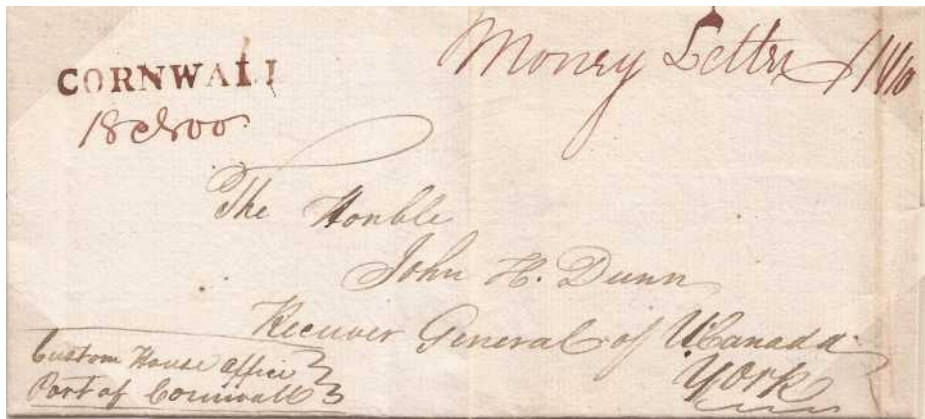 CORNWALL
Money Letter
The Honble
John H. Dunn
Receiver General of U Canada
York
Custom House Office
Port of Cornwall